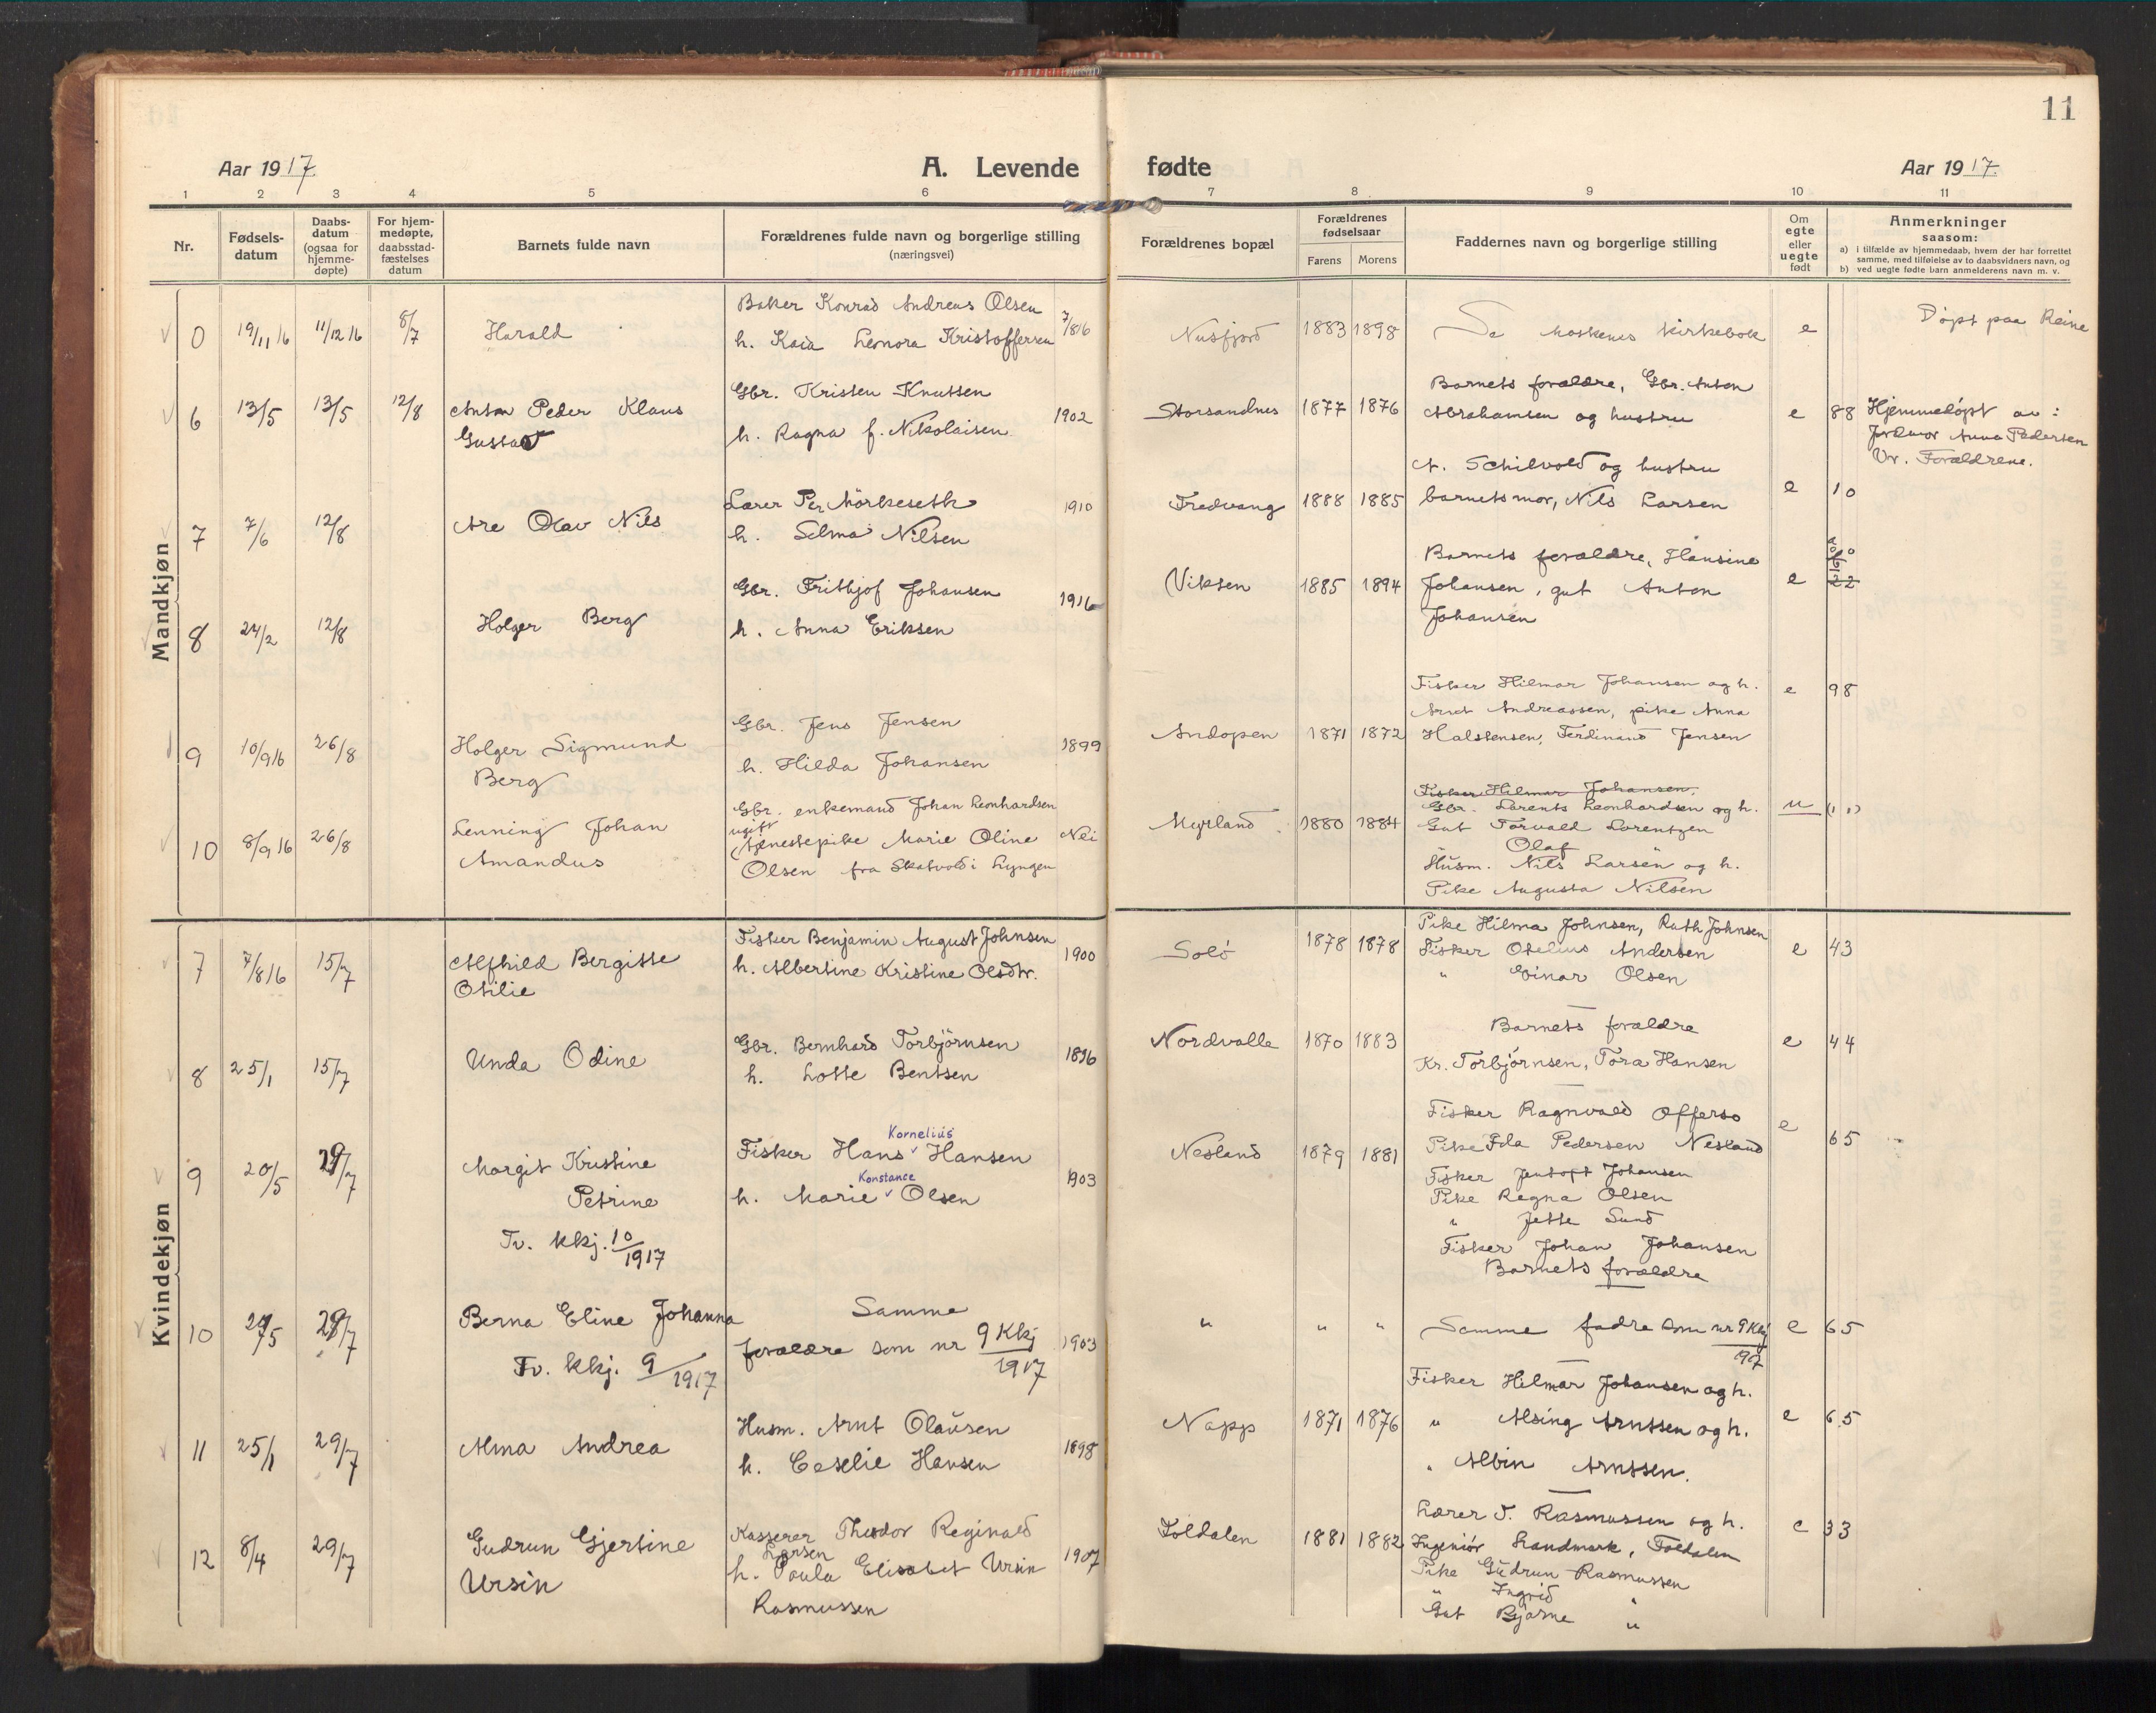 11
Aar 1917.
A. Levende fødte
Aar 1917.
1 2 3 4 5 6 7 8 9 10 11
Nr.
Fødsels-
datum
Daabs-
datum
(ogsaa for
hjemme-
døpte)
For hjem-
medøpte,
daabsstad-
fæstelses
datum
Barnets fulde navn
Forældrenes fulde navn og borgerlige stilling
(næringsvei)
Forældrenes bopæl
Forældrenes
fødselsaar
Farens Morens
Faddernes navn og borgerlige stilling
Om
egte
eller
uegte
født
Anmerkninger
saasom:
a) i tilfælde av hjemmedaab, hvem der har forrettet
samme, med tilføielse av to daabsvidners navn, og
b) ved uegte fødte barn anmelderens navn m. v.
Mandkjøn
0 19/11 16 11/12 16 8/7
Harald
Baker Konrad Andreas Olsen
h. Kaia Leonora Kristoffersen
7/8 16
Nusfjord 1883 1898
Se Moskenes kirkebok
e
Døpt paa Reine
6 13/5 13/5 12/8
Anton Peder Klaus
Gustav
Gbr. Kristen Knutsen
h. Ragna f. Nikolaisen
1902
Storsandnes 1877 1876
Barnets forældre, Gbr. Anton
Abrahamsen og hustru
e 88
Hjemmedøpt av:
Jordmor Anna Pedersen
Vv. Forældrene.
7 7/6 12/8
Are Olav Nils
Lærer Per Mörkeseth
h. Selma Nilsen
1910
Fredvang 1888 1885
A. Schilvold og hustru
barnets mor, Nils Larsen
e 10
8 24/2 12/8
Holger Berg
Gbr. Frithjof Johansen
h. Anna Eriksen
1916
Viksen 1885 1894
Barnets forældre, Hansine
Johansen, gut Anton
Johansen
e 22
9 10/9 16 26/8
Holger Sigmund
Berg
Gbr. Jens Jensen
h. Hilda Johansen
1899
Andopen 1871 1872
Fisker Hilmar Johansen og h.
Arnt Andreassen, pike Anna
Halstensen, Ferdinand Jensen
e 98
10 8/9 16 26/8
Lenning Johan
Amandus
Gbr. enkemand Johan Leonhardsen
ugift
tjenestepike Marie Oline
Olsen fra Skatvold i Lyngen
Nei
Myrland 1880 1884
Fisker Hilmar Johansen.
Gbr. Lorents Leonhardsen og h.
Gut Torvald Lorentzen
" Olaf "
Husm. Nils Larsen og h.
Pike Augusta Nilsen
u
Kvindekjøn
7 7/8 16 15/7
Alfhild Bergitte
Otilie
Fisker Benjamin August Johnsen
h. Albertine Kristine Olsdtr.
1900
Solö 1878 1878
Pike Hilma Johnsen, Ruth Johnsen
Fisker Otelius Andersen
" Einar Olsen
e 43
8 25/1 15/7
Unda Odine
Gbr. Bernhard Torbjörnsen
h. Lotte Bentsen
1896
Nordvalle 1870 1883
Barnets forældre
Kr. Torbjörnsen, Tora Hansen
e 44
9 20/5 29/7
Margit Kristine
Petrine
Tv. kkj. 10/1917
Kornelius
Fisker Hans Hansen
Konstance
h. Marie Olsen
1903
Nesland 1879 1881
Fisker Ragnvald Offerso
Pike Ida Pedersen Nesland
Fisker Jentoft Johansen
Pike Ragna Olsen
" Jette Sund
Fisker Johan Johansen
Barnets forældre
e 65
10 20/5 29/7
Berna Eline Johanna
Tv. kkj. 9/1917
Samme
forældre som nr 9 Kkj/1917
1903
" " "
Samme fadre som nr 9 Kkj/1917
e 65
11 25/1 29/7
Alma Andrea
Husm. Arnt Olausen
h. Ceselie Hansen
1898
Napp 1871 1876
Fisker Hilmar Johansen og h.
" Alsing Arntsen og h.
" Albin Arntsen.
e 65
12 8/4 29/7
Gudrun Gjertine
Ursin
Kasserer Theodor Reginald
Larsen
h. Paula Elisabet Ursin
Rasmussen
1907
Foldalen 1881 1882
Lærer T. Rasmussen og h.
Ingeniör Landmark, Foldalen
Pike Gudrun Rasmussen
" Ingrid "
Gut Bjarne "
e 33